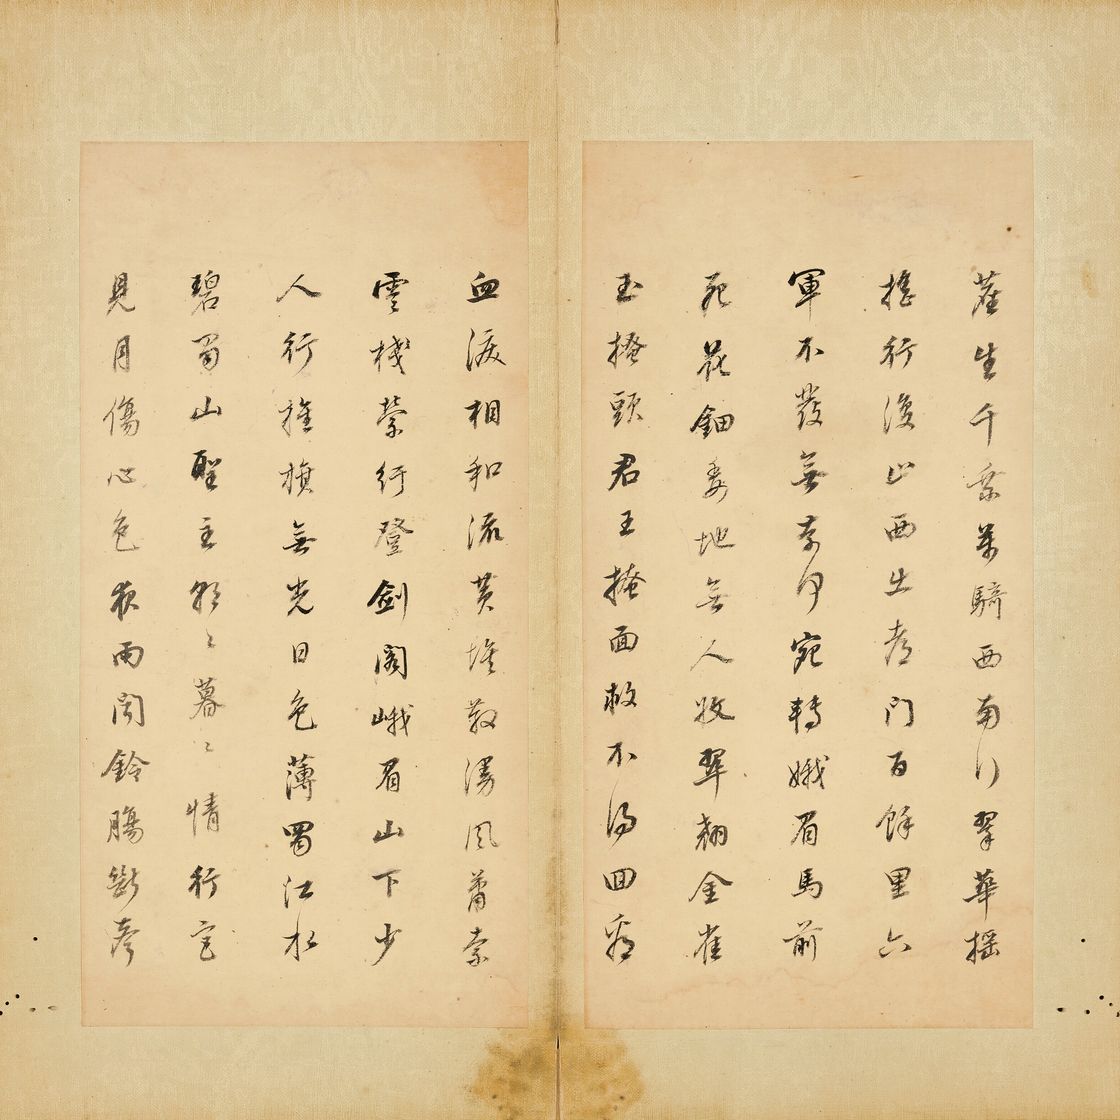 塵生千乘萬騎西南行翠華搖
搖行復止西出都門百餘里六
軍不發無奈何宛轉娥眉馬前
死花鈿委地無人收翠翹金雀
玉搔頭君王掩面救不得回看
血淚相和流黃埃散漫風蕭索
雲棧縈行登劍閣峨眉山下少
人行旌旗無光日色薄蜀江水
碧蜀山聖主朝々暮々情行宮
見月傷心色夜雨聞鈴腸斷聲